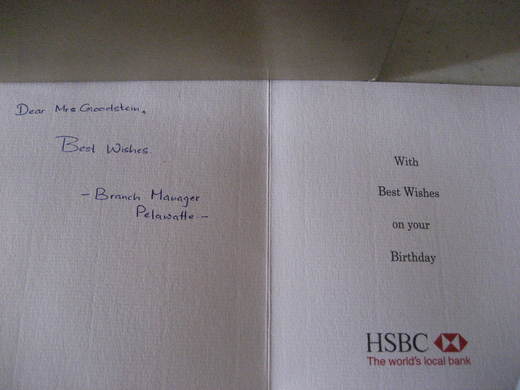 Dear Mrs Goodstein,
Best Wishes
- Branch Manager
Pelawatte -
With
Best Wishes
on your
Birthday
HSBC
The world's local bank